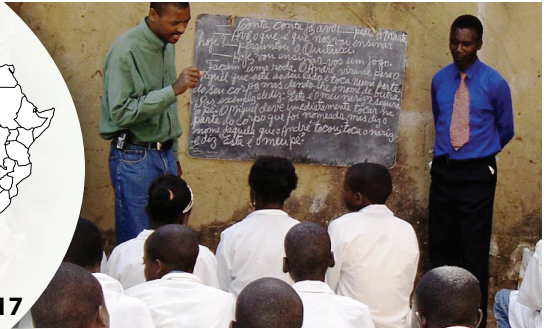 Conta conta já avó... pediu a Marta
Avô que é que nos vai ensinar
hoje? perguntou o Quitucci.
Hoje vou ensinar-vos um jogo.
Façam uma roda. O André virando para
aquele que está ao seu lado, toca numa parte
do seu corpo mas dando-lhe o nome de outra.
Por exemplo diz: Este é o meu nariz? segura
o pé. O Miguel deve imediatamente tocar na
parte do corpo que foi nomeada, mas diz o
nome daquela que o André tocou; toca o nariz
e diz "Este é o meu pé".
17